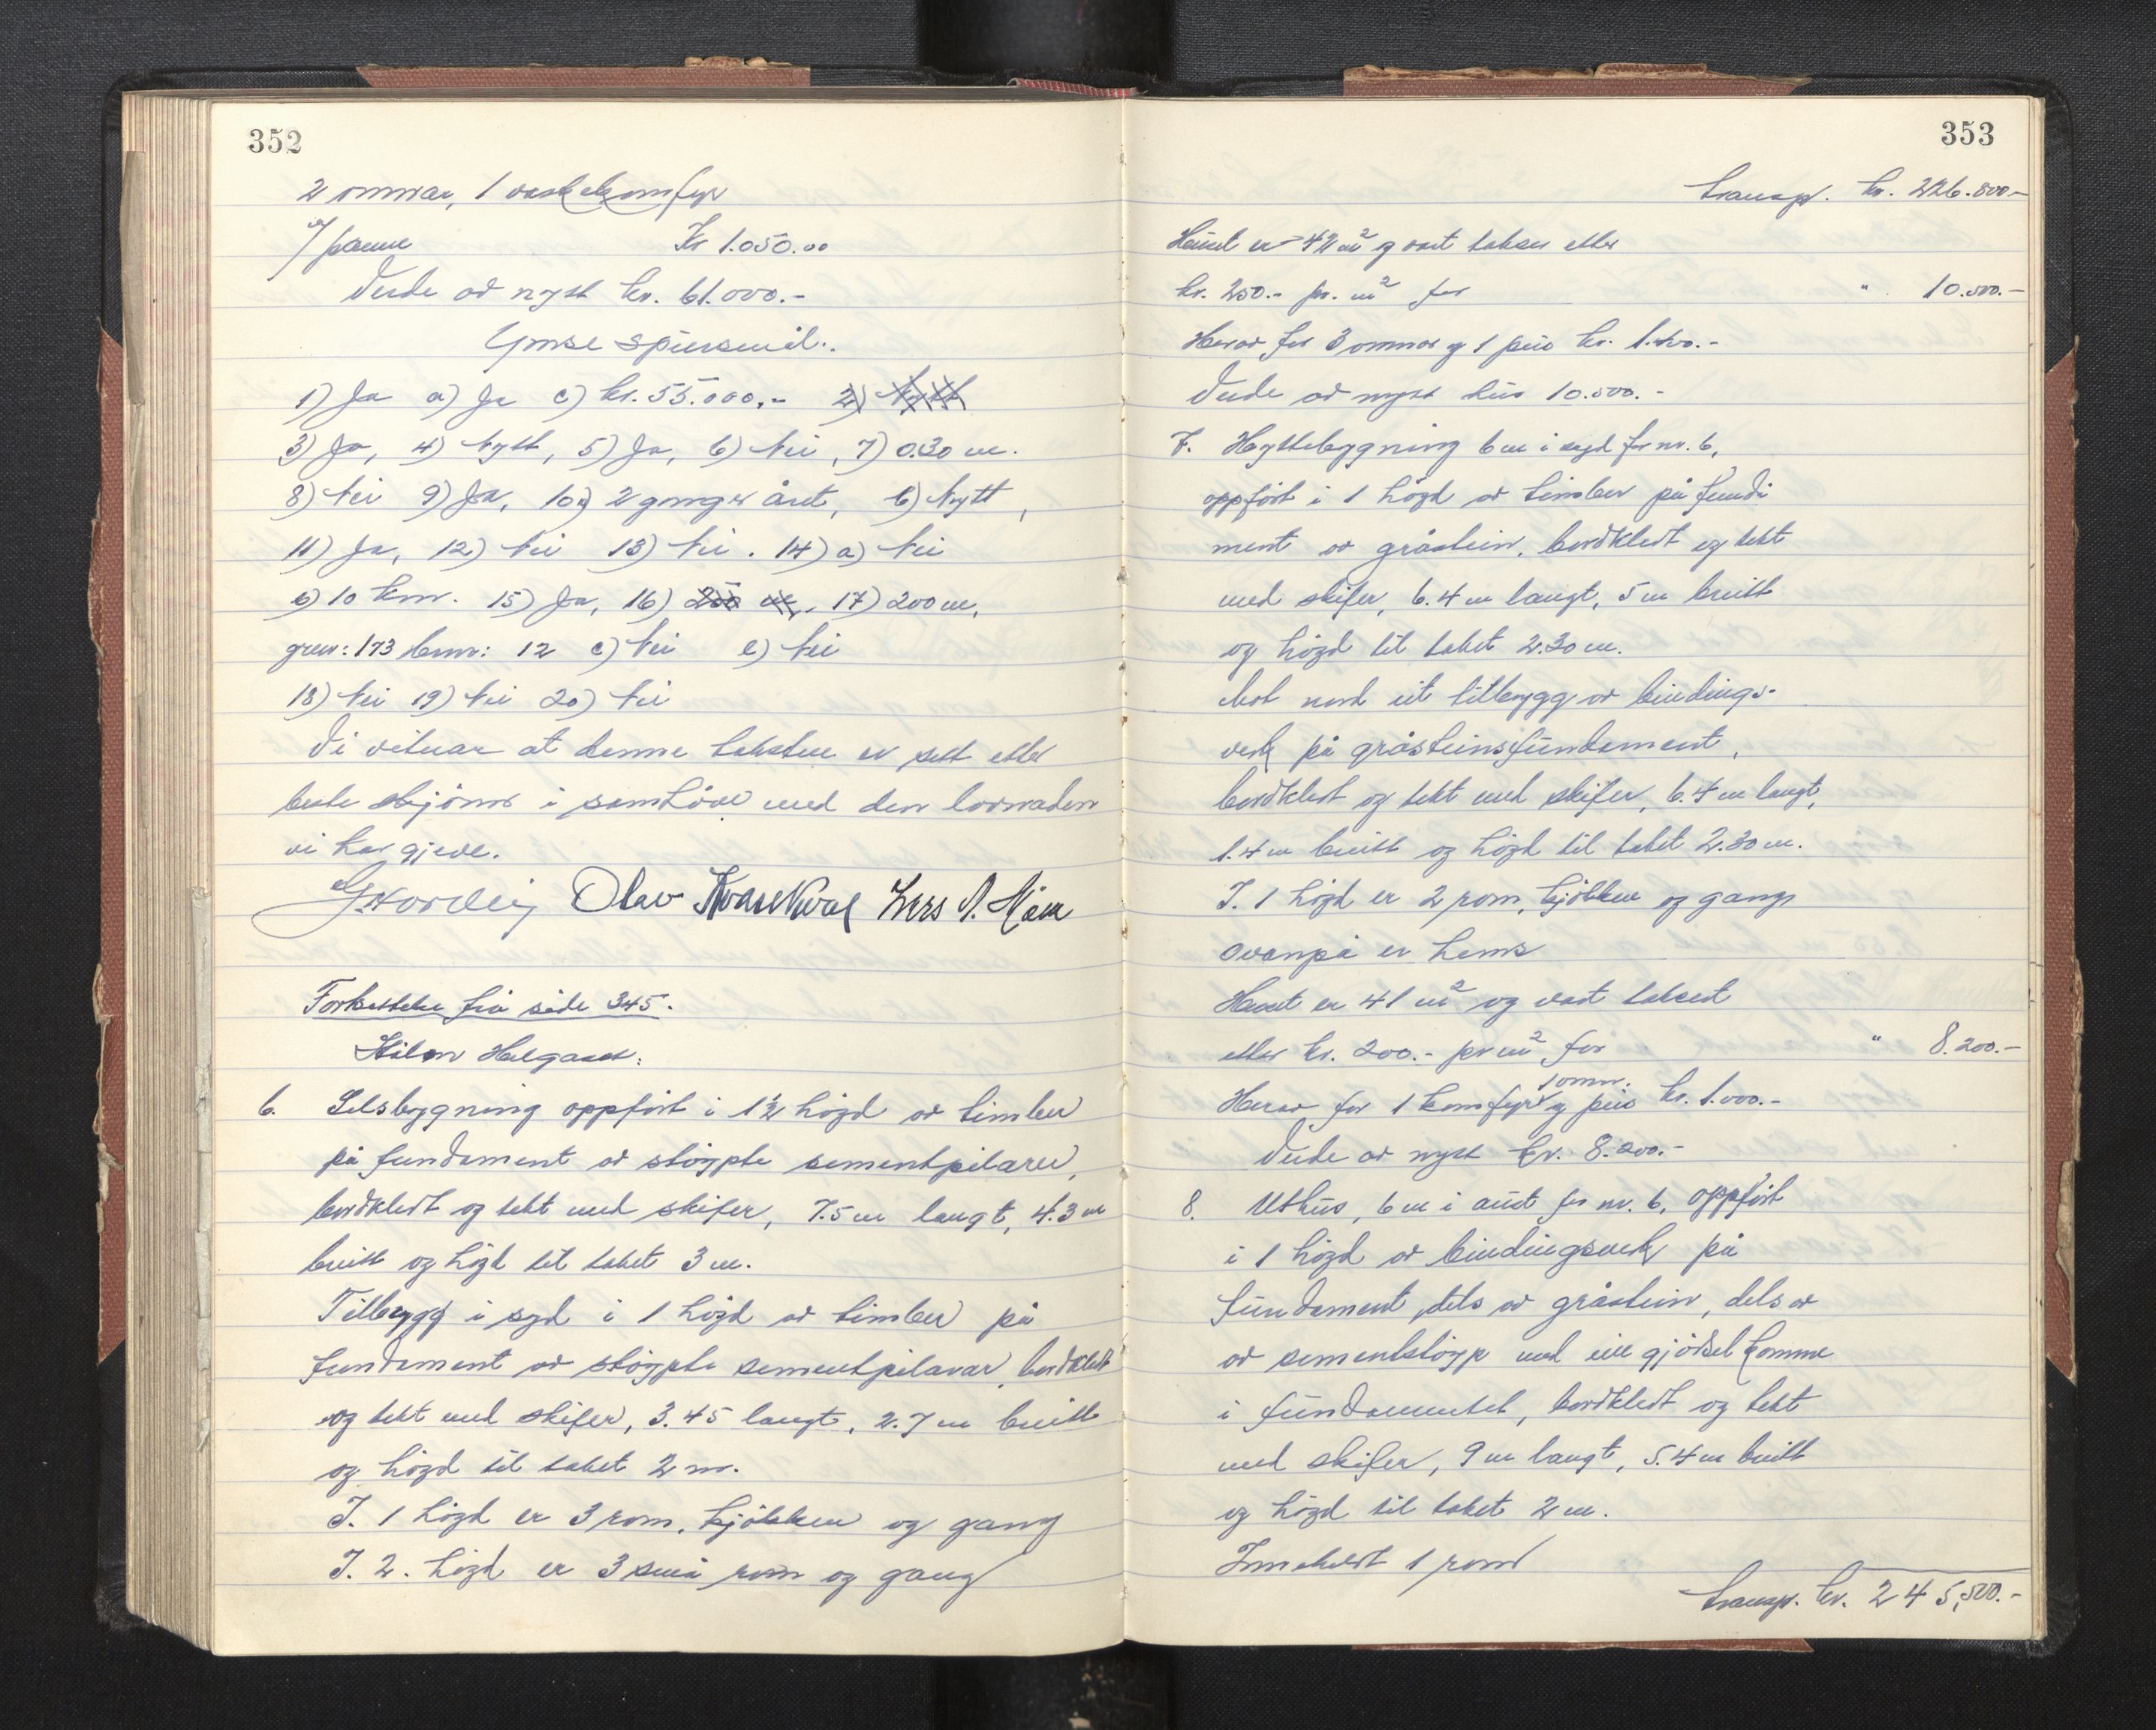 352
2 omnar, 1 vaskekomfyr
m/panne Kr 1.050.00
Verde av nytt kr. 61.000.-
Ymse spursmål.
1) Ja a) Ja c) kr. 55.000,- 2) Nytt
3) Ja, 4) Nytt, 5) Ja, 6) Nei, 7) 0.30 m.
8) Nei 9) Ja, 10a) 2 gonger året, b) Nytt,
11) Ja, 12) Nei 13) Nei. 14) a) Nei
b) 10 km. 15) Ja, 16) 200 m. 17) 200 m.
grnr: 173 brnr: 12 c) Nei e) Nei
18) Nei 19) Nei 20) Nei
Vi vitnar at denne taksten er sett etter
beste skjønn i samhøve med den lovnaden
vi har gjeve.
Olav Lers
Forkettelse frå side 345.
Helgaset:
6. Selsbygning oppført i 1½ høgd av timber
på fundament av støypte sementpilarer,
bordkledt og tekt med skifer, 7.5 m langt, 4.3 m
breitt og høgd til taket 3 m.
Tilbygg i syd i 1 høgd av timber på
fundament av støypte sementpilarar, bordkledt
og tekt med skifer, 3.45 langt, 2.7 m breitt
og høgd til taket 2 m.
I. 1 høgd er 3 rom, kjøkken og gang
I. 2. høgd er 3 små rom og gang
353
transp. kr. 226.800-
Huset er 42 m² og vart takser etter
kr. 250.- pr. m² for " 10.500.-
Herav for 3 omnar og 1 peis kr. 1.400.-
Verde av nytt hus 10.500.-
7. Hyttebygning 6 m i syd for nr. 6,
oppført i 1 høgd av timber på funda
ment av gråstein, bordkledt og tekt
med skifer, 6.4 m langt, 5 m breitt
og høgd til taket 2.30 m.
Mot nord eit tilbygg av bindings-
verk på gråsteinsfundament,
bordkledt og tekt med skifer, 6.4 m langt,
1.4 m breitt og høgd til taket 2.30 m.
I. 1 høgd er 2 rom, kjøkken og gang
ovanpå er hems
Huset er 41 m² og vart taksert
etter kr. 200.- pr m² for " 8.200.-
Herav for 1 komfyr 1 omn. og peis kr. 1.000.-
Verde av nytt kr. 8.200.-
8. Uthus, 6 m i aust for nr. 6, oppført
i 1 høgd av bindingsverk på
fundament, dels av gråstein, dels av
av sementstøyp med ein gjødselkomme
i fundamentet, bordkledt og tekt
med skifer, 9 m langt, 5.4 m breitt
og høgd til taket 2 m.
Inneheldt 1 rom
transp. kr. 245,500.-